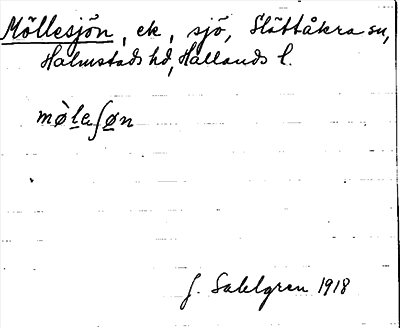 Möllesjön, ek, sjö, Slättåkra sn,
Halmstads hd, Hallands l.
mø̀leʃøn
J. Sahlgren 1918